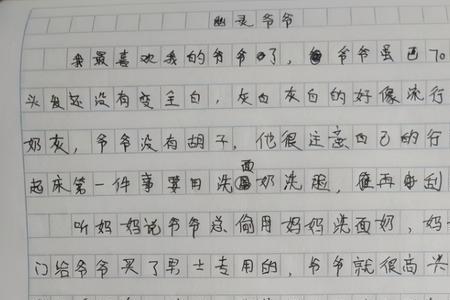 幽灵爷爷
我最喜欢我的爷爷了，爷爷虽已70
头发还没有变全白，灰白灰白的好像流行
奶灰，爷爷没有胡子，他很注意自己的行
起床第一件事要用洗面奶洗脸，再刮
听妈妈说爷爷总偷用妈妈洗面奶，妈
门给爷爷买了男士专用的，爷爷就很高兴